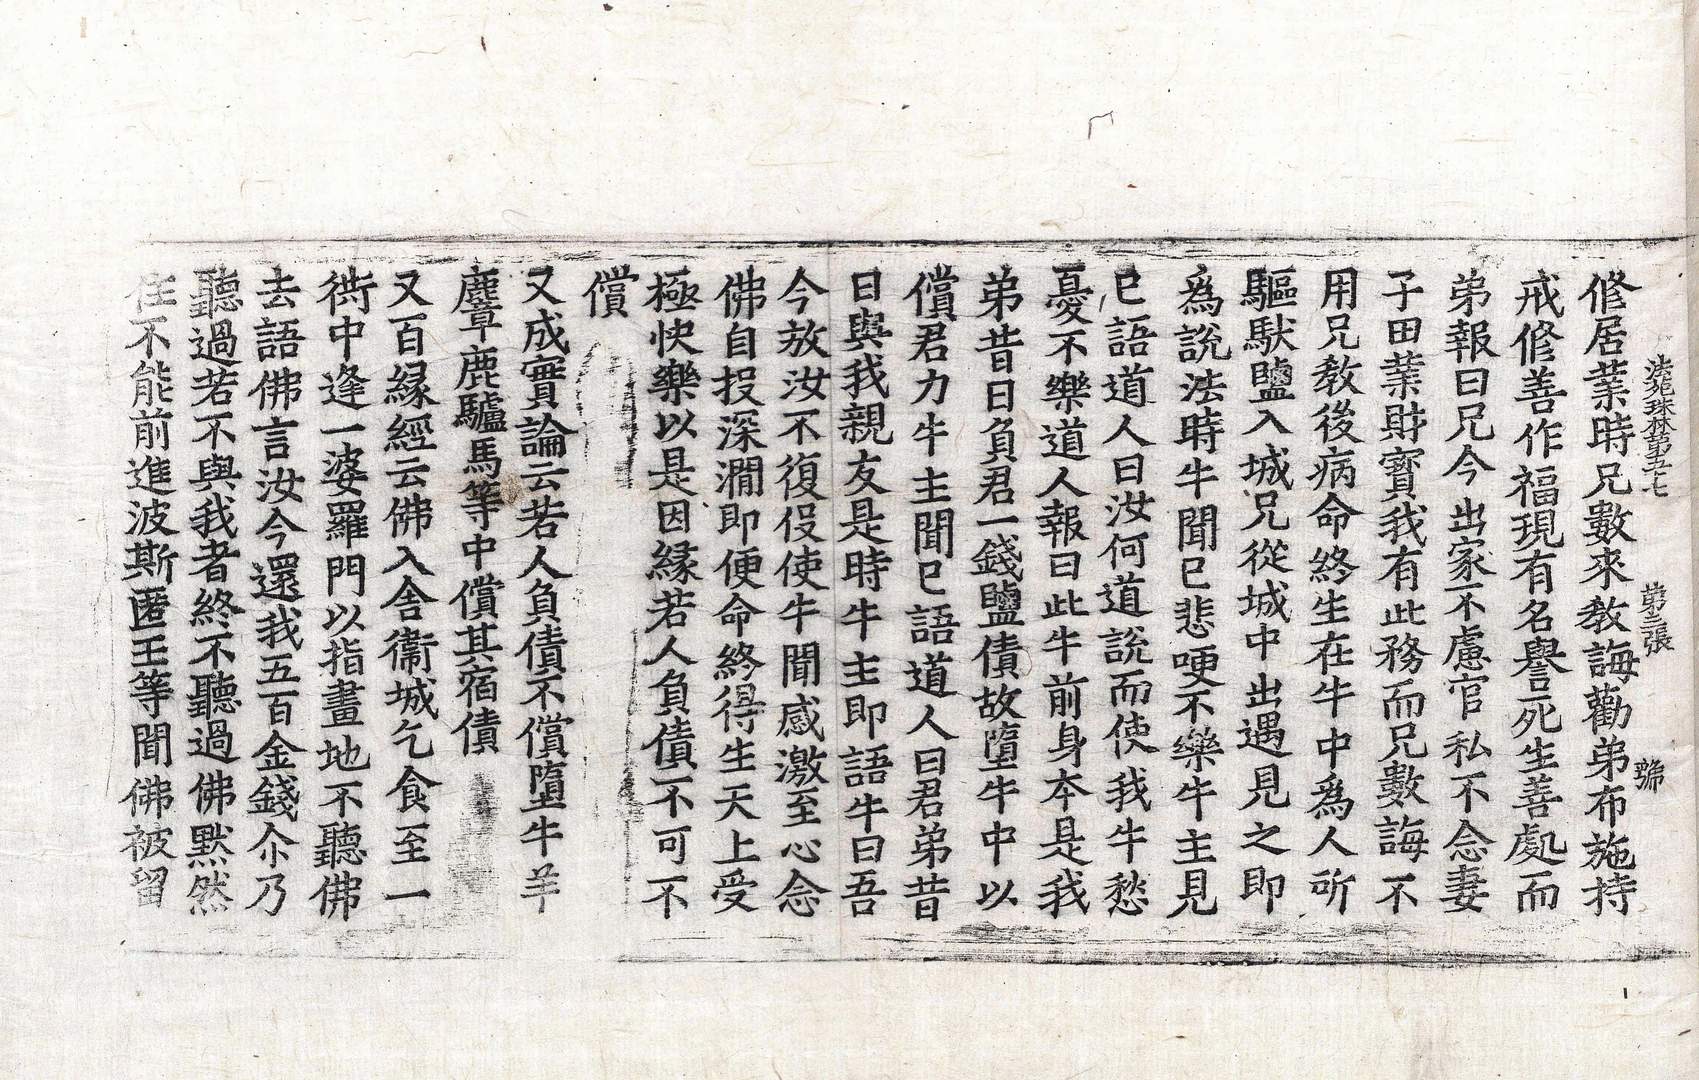 法苑珠林第五七 第三張 號
修居業時兄數來教誨勸弟布施持
戒修善作福現有名譽死生善處而
弟報曰兄今出家不慮官私不念妻
子田業財寳我有此務而兄數誨不
用兄教後病命終生在牛中爲人所
驅馱鹽入城兄從城中出遇見之即
爲說法時牛聞已悲哽不樂牛主見
已語道人曰汝何道說而使我牛愁
憂不樂道人報曰此牛前身本是我
弟昔日負君一錢鹽債故墮牛中以
償君力牛主聞已語道人曰君弟昔
日與我親友是時牛主即語牛曰吾
今放汝不復役使牛聞感激至心念
佛自投深澗即便命終得生天上受
極快樂以是因緣若人負債不可不
償
又成實論云若人負債不償墮牛羊
麞鹿驢馬等中償其宿債
又百緣經云佛入舎衞城乞食至一
衖中逢一婆羅門以指畫地不聽佛
去語佛言汝今還我五百金錢尒乃
聽過若不與我者終不聽過佛默然
住不能前進波斯匿王等聞佛被留